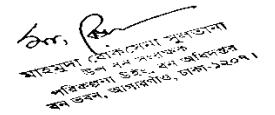 মাহমুদা রোকসেনা সুলতানা
উপ বন সংরক্ষক
পরিকল্পনা উইং, বন অধিদপ্তর
বন ভবন, আগারগাঁও, ঢাকা-১২০৭।